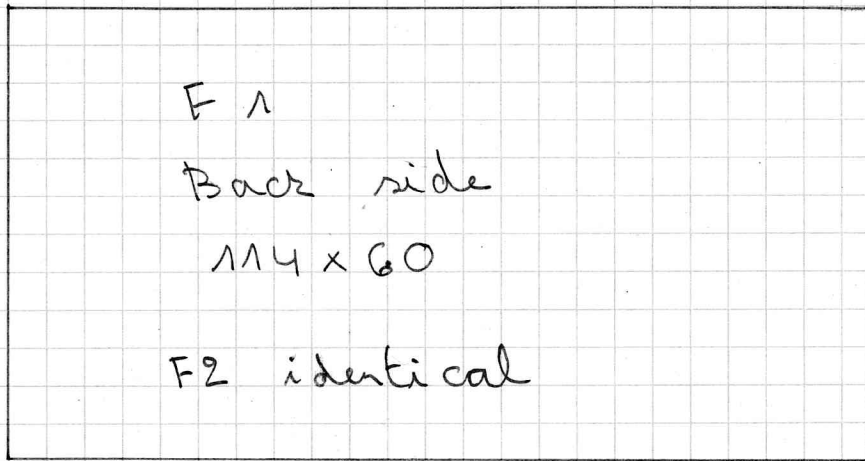 F 1
Back side
114 x 60
F2 identical